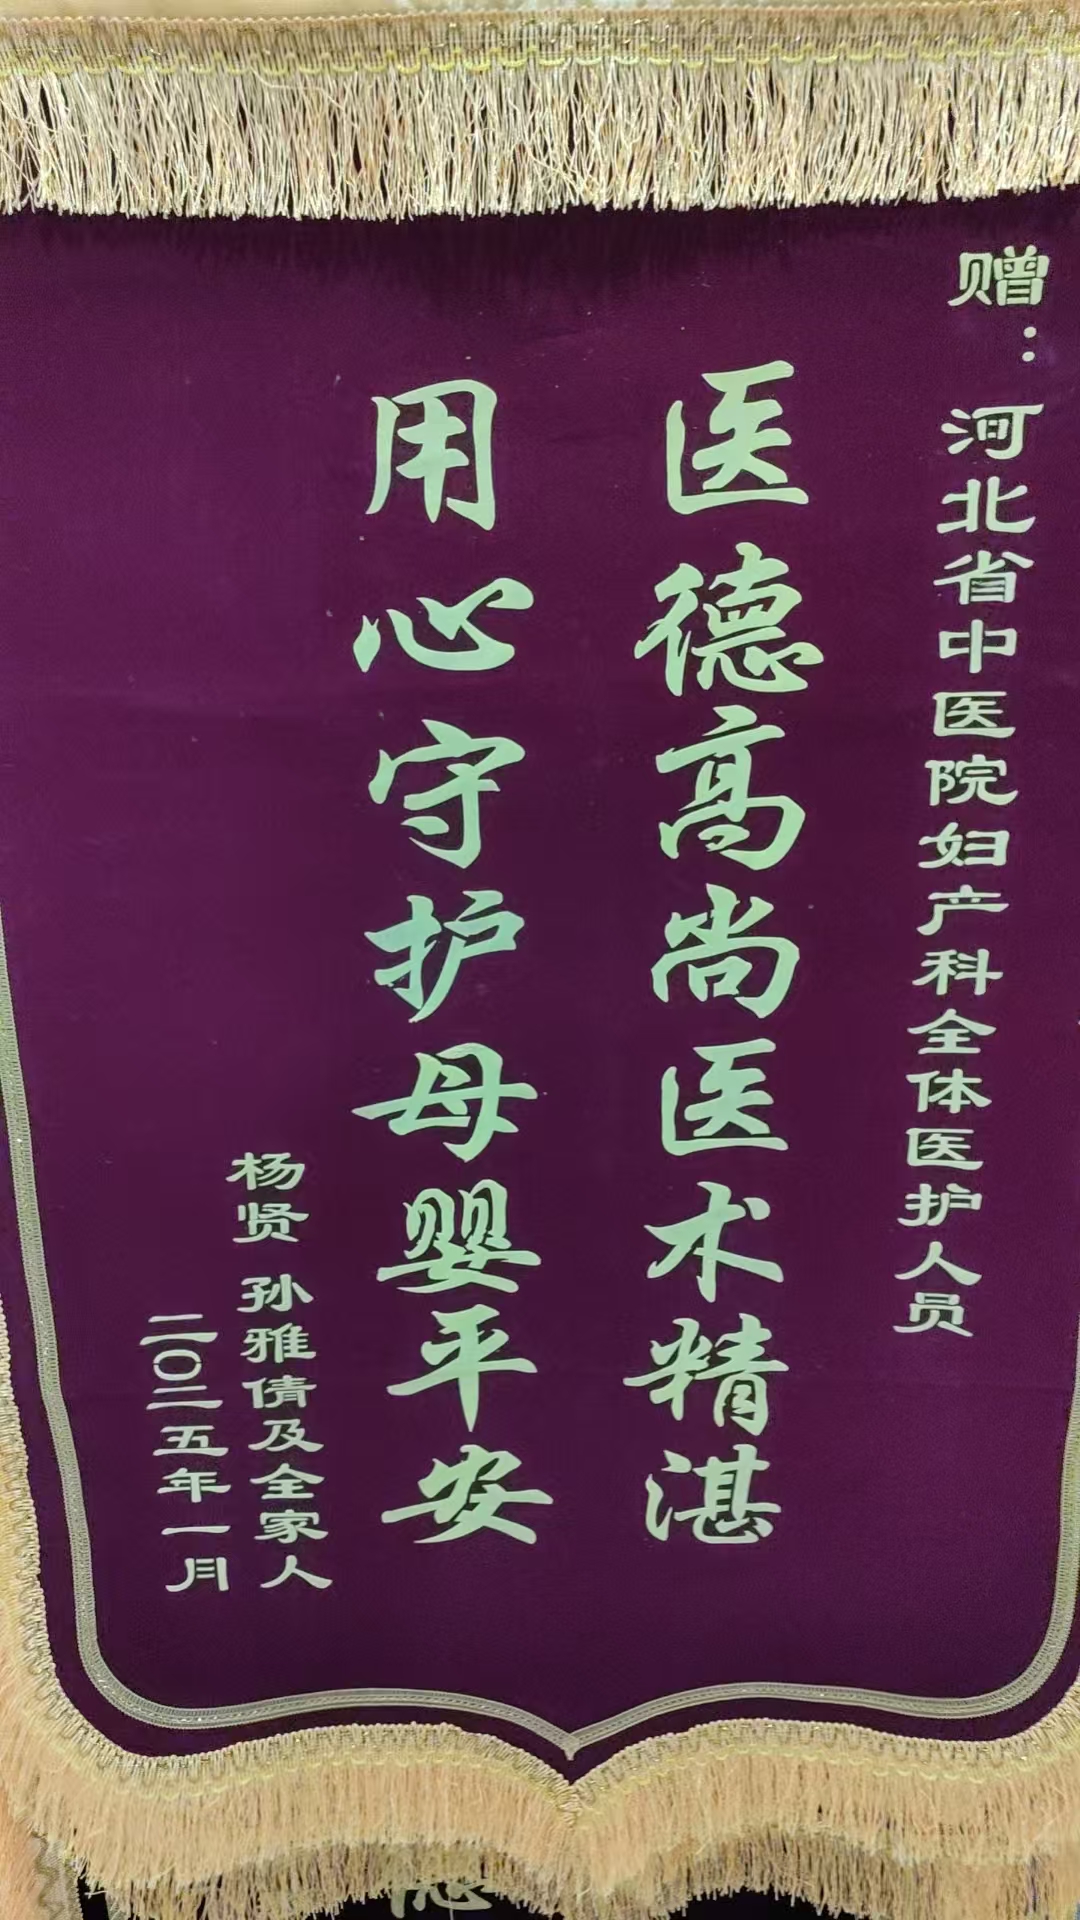 赠：河北省中医院妇产科全体医护人员
医德高尚医术精湛
用心守护母婴平安
杨贤 孙雅倩及全家人
二〇二五年一月